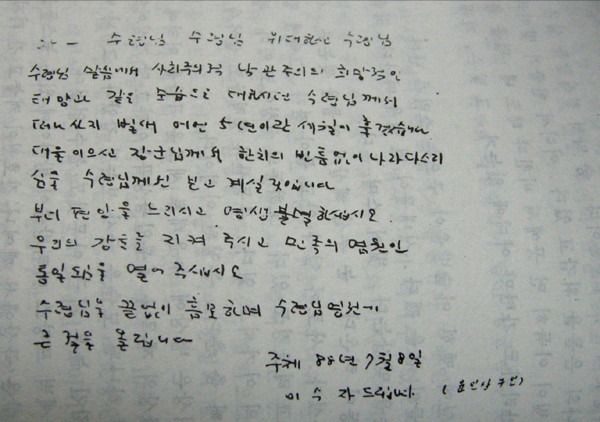 아 - 수령님 수령님 위대한 수령님
수령님 말씀에서 사회주의적 낙관주의의 희망적인
태양과 같은 모습으로 대하시던 수령님께서
떠나신지 벌써 어언 5년이란 세월이 흘렀습니다
대를 이으신 장군님께서 한치의 빈틈없이 나라다스리
심을 수령님께선 믿고 계실것입니다
부디 편안을 느리시고 영생불멸하십시오
우리의 강토를 지켜 주시고 민족의 염원인
통일의 을 열어 주십시오
수령님을 끝없이 흠모하며 수령님영전에
큰 절을 올립니다
주체 88년 7월 8일
이 수 자 드립니다 (윤이상 부인)